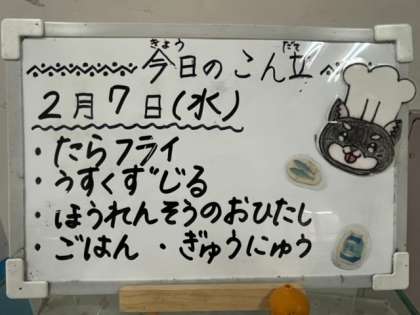 きょう だて
今日のこん立
2月7日(水)
・たらフライ
・うすくずじる
・ほうれんそうのおひたし
・ごはん ・ぎゅうにゅう